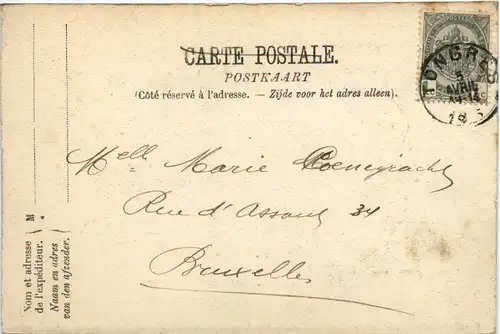 CARTE POSTALE.
POSTKAART
(Côté réservé à l'adresse. — Zijde voor het adres alleen).
TONGRES
5
AVRIL
Melle Marie Coenegracht
Rue d'Assaut 34
Bruxelles
M
Nom et adresse
de l'expéditeur.
Naam en adres
van den afzender.